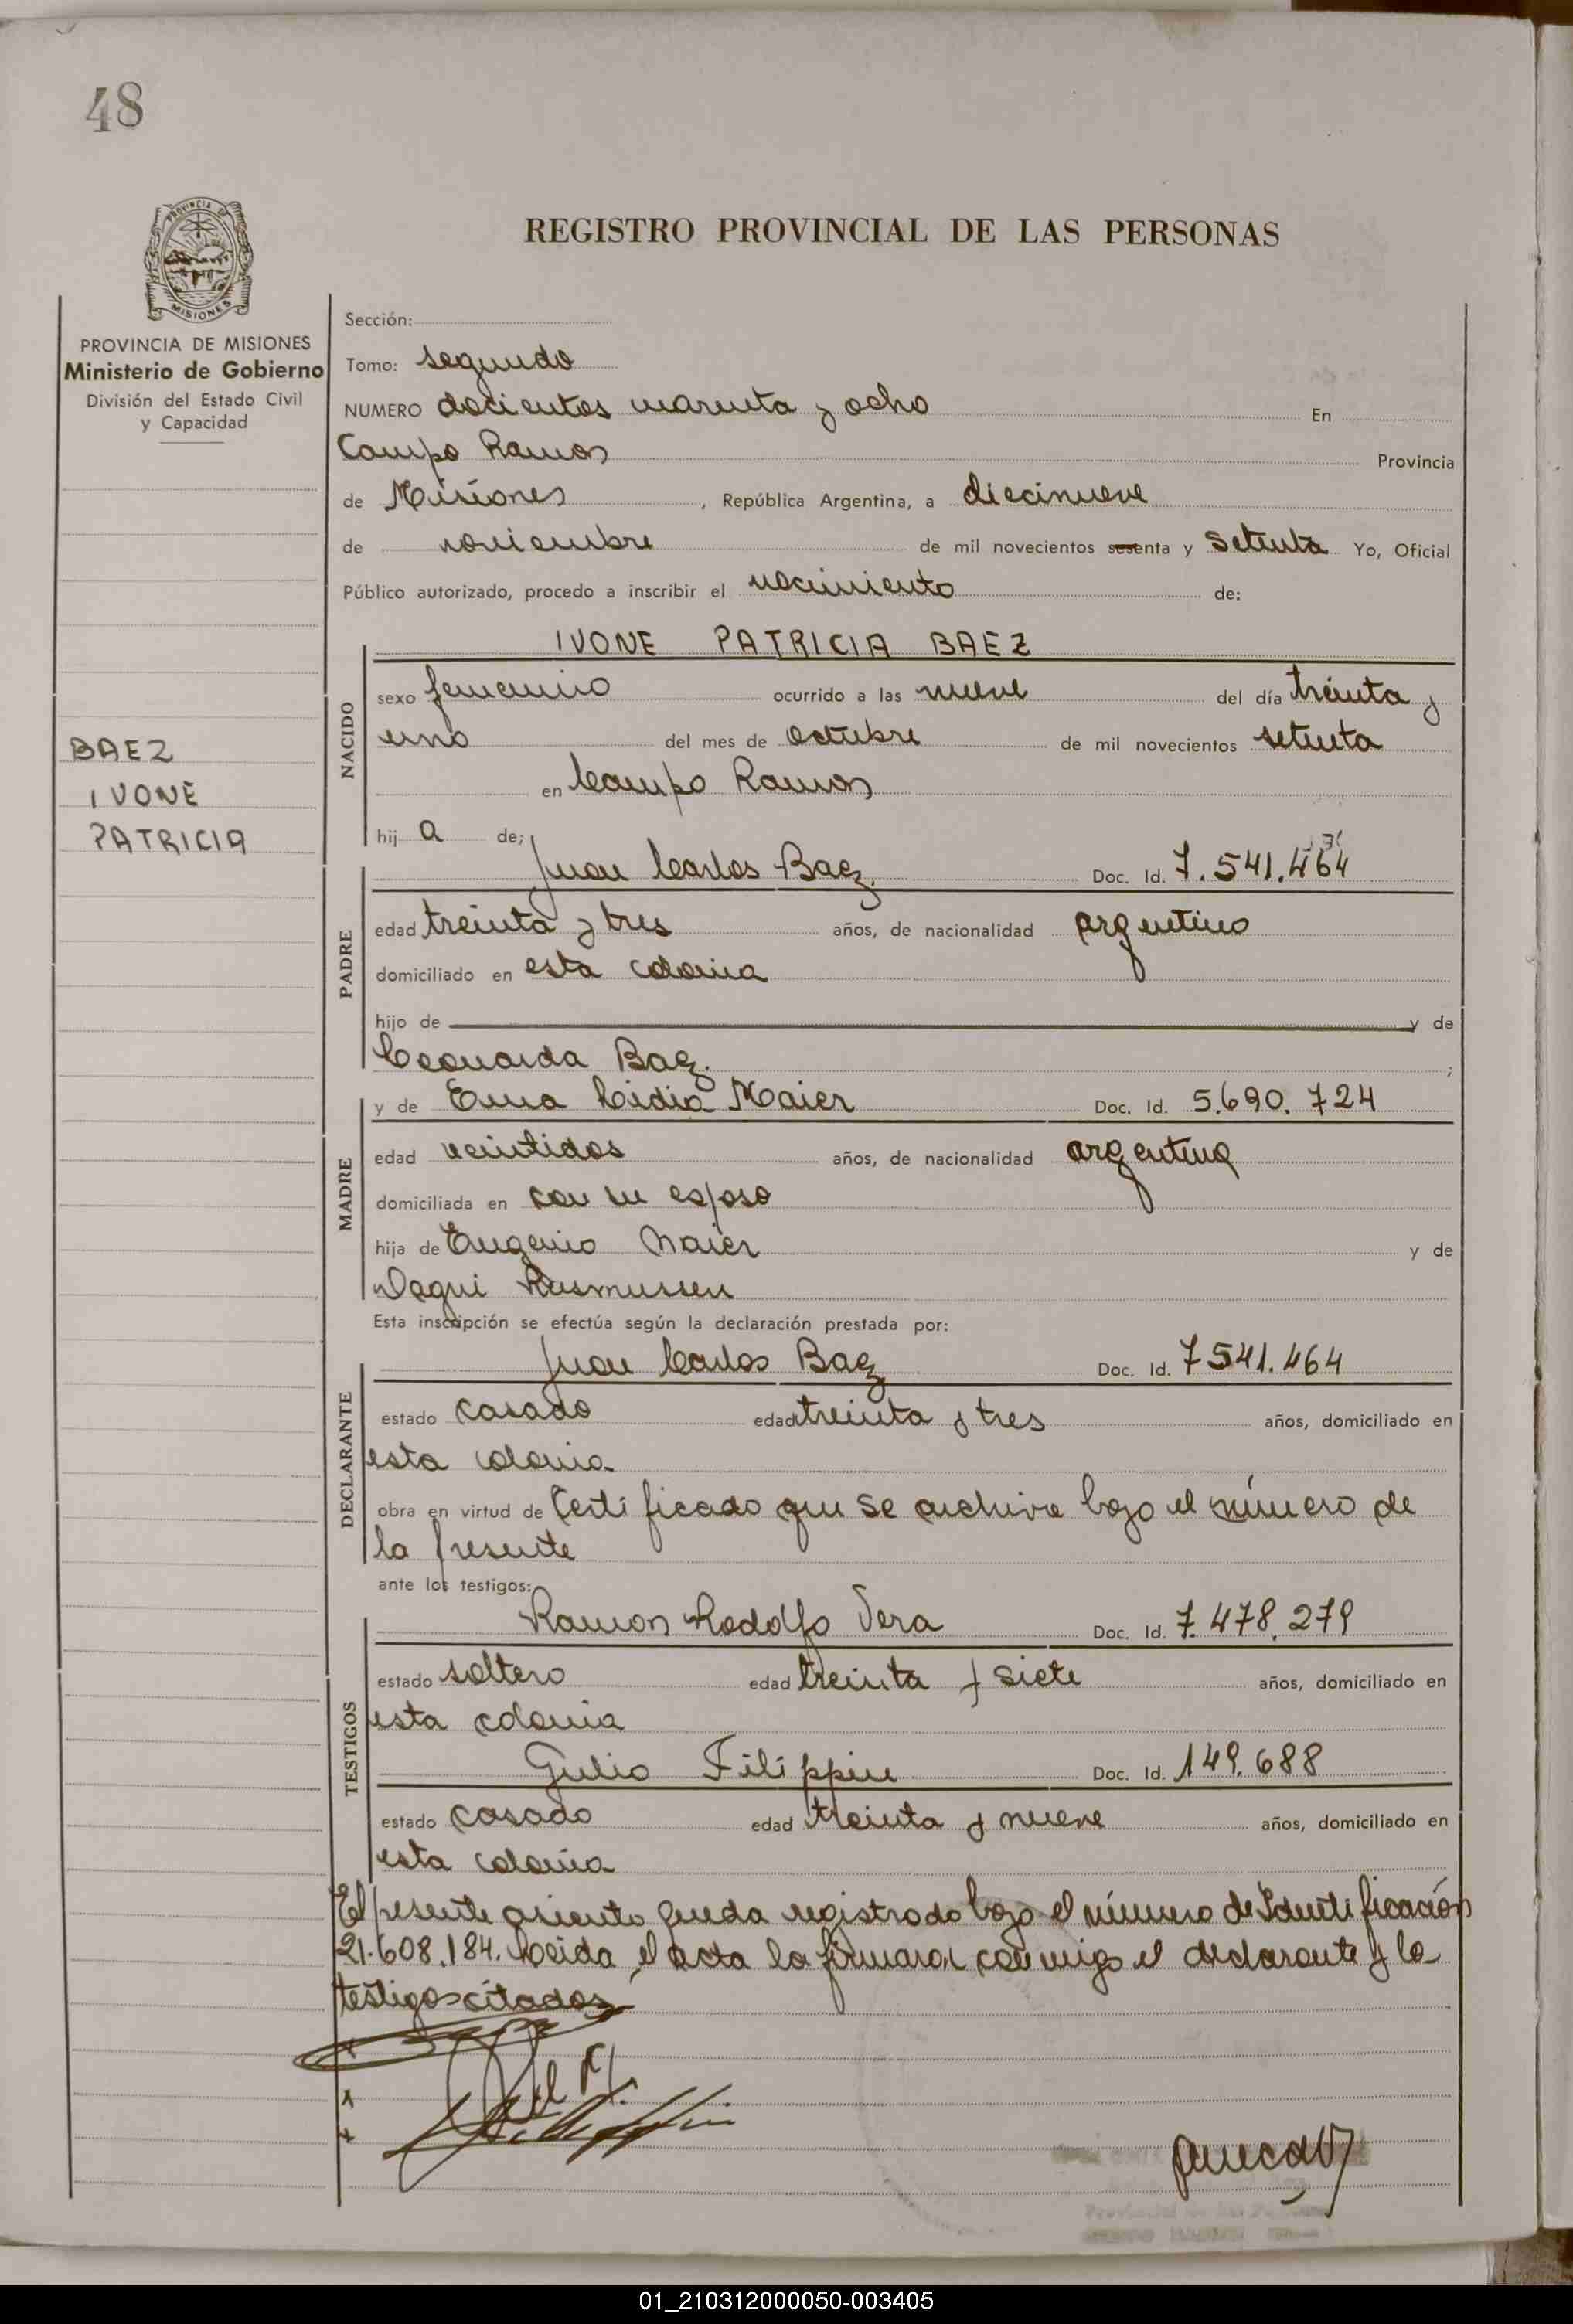 48
PROVINCIA DE
MISIONES
REGISTRO PROVINCIAL DE LAS PERSONAS
PROVINCIA DE MISIONES
Ministerio de Gobierno
División del Estado Civil
y Capacidad
BAEZ
IVONE
PATRICIA
Sección:
Tomo: segundo
NUMERO docientos cuarenta y ocho En
Campo Ramon Provincia
de Misiones, República Argentina, a diecinueve
de noviembre de mil novecientos sesenta y setenta Yo, Oficial
Público autorizado, procedo a inscribir el nacimiento de:
IVONE PATRICIA BAEZ
NACIDO
sexo femenino ocurrido a las nueve del día treinta y
uno del mes de octubre de mil novecientos setenta
en Campo Ramon
hij a de;
Juan Carlos Baez. Doc. Id. 7.541.464
PADRE
edad treinta y tres años, de nacionalidad argentino
domiciliado en esta colonia
hijo de y de
Leonarda Baez. ;
y de Ema Lidia Maier Doc. Id. 5.690.724
MADRE
edad veintidos años, de nacionalidad argentina
domiciliada en con su esposo
hija de Eugenio Maier y de
Dagni Rasmussen
Esta inscripción se efectúa según la declaración prestada por:
Juan Carlos Baez Doc. Id. 7541.464
DECLARANTE
estado casado edad treinta y tres años, domiciliado en
esta colonia
obra en virtud de Certificado que se archiva bajo el número de
la presente
ante los testigos:
Ramon Rodolfo Vera Doc. Id. 7.478.279
TESTIGOS
estado soltero edad treinta y siete años, domiciliado en
esta colonia
Julio Filippin Doc. Id. 149.688
estado casado edad treinta y nueve años, domiciliado en
esta colonia
El presente asiento queda registrado bajo el número de Identificación
21.608.184. Leida el acta la firman conmigo el declarante y lo
testigos citados
01_210312000050-003405